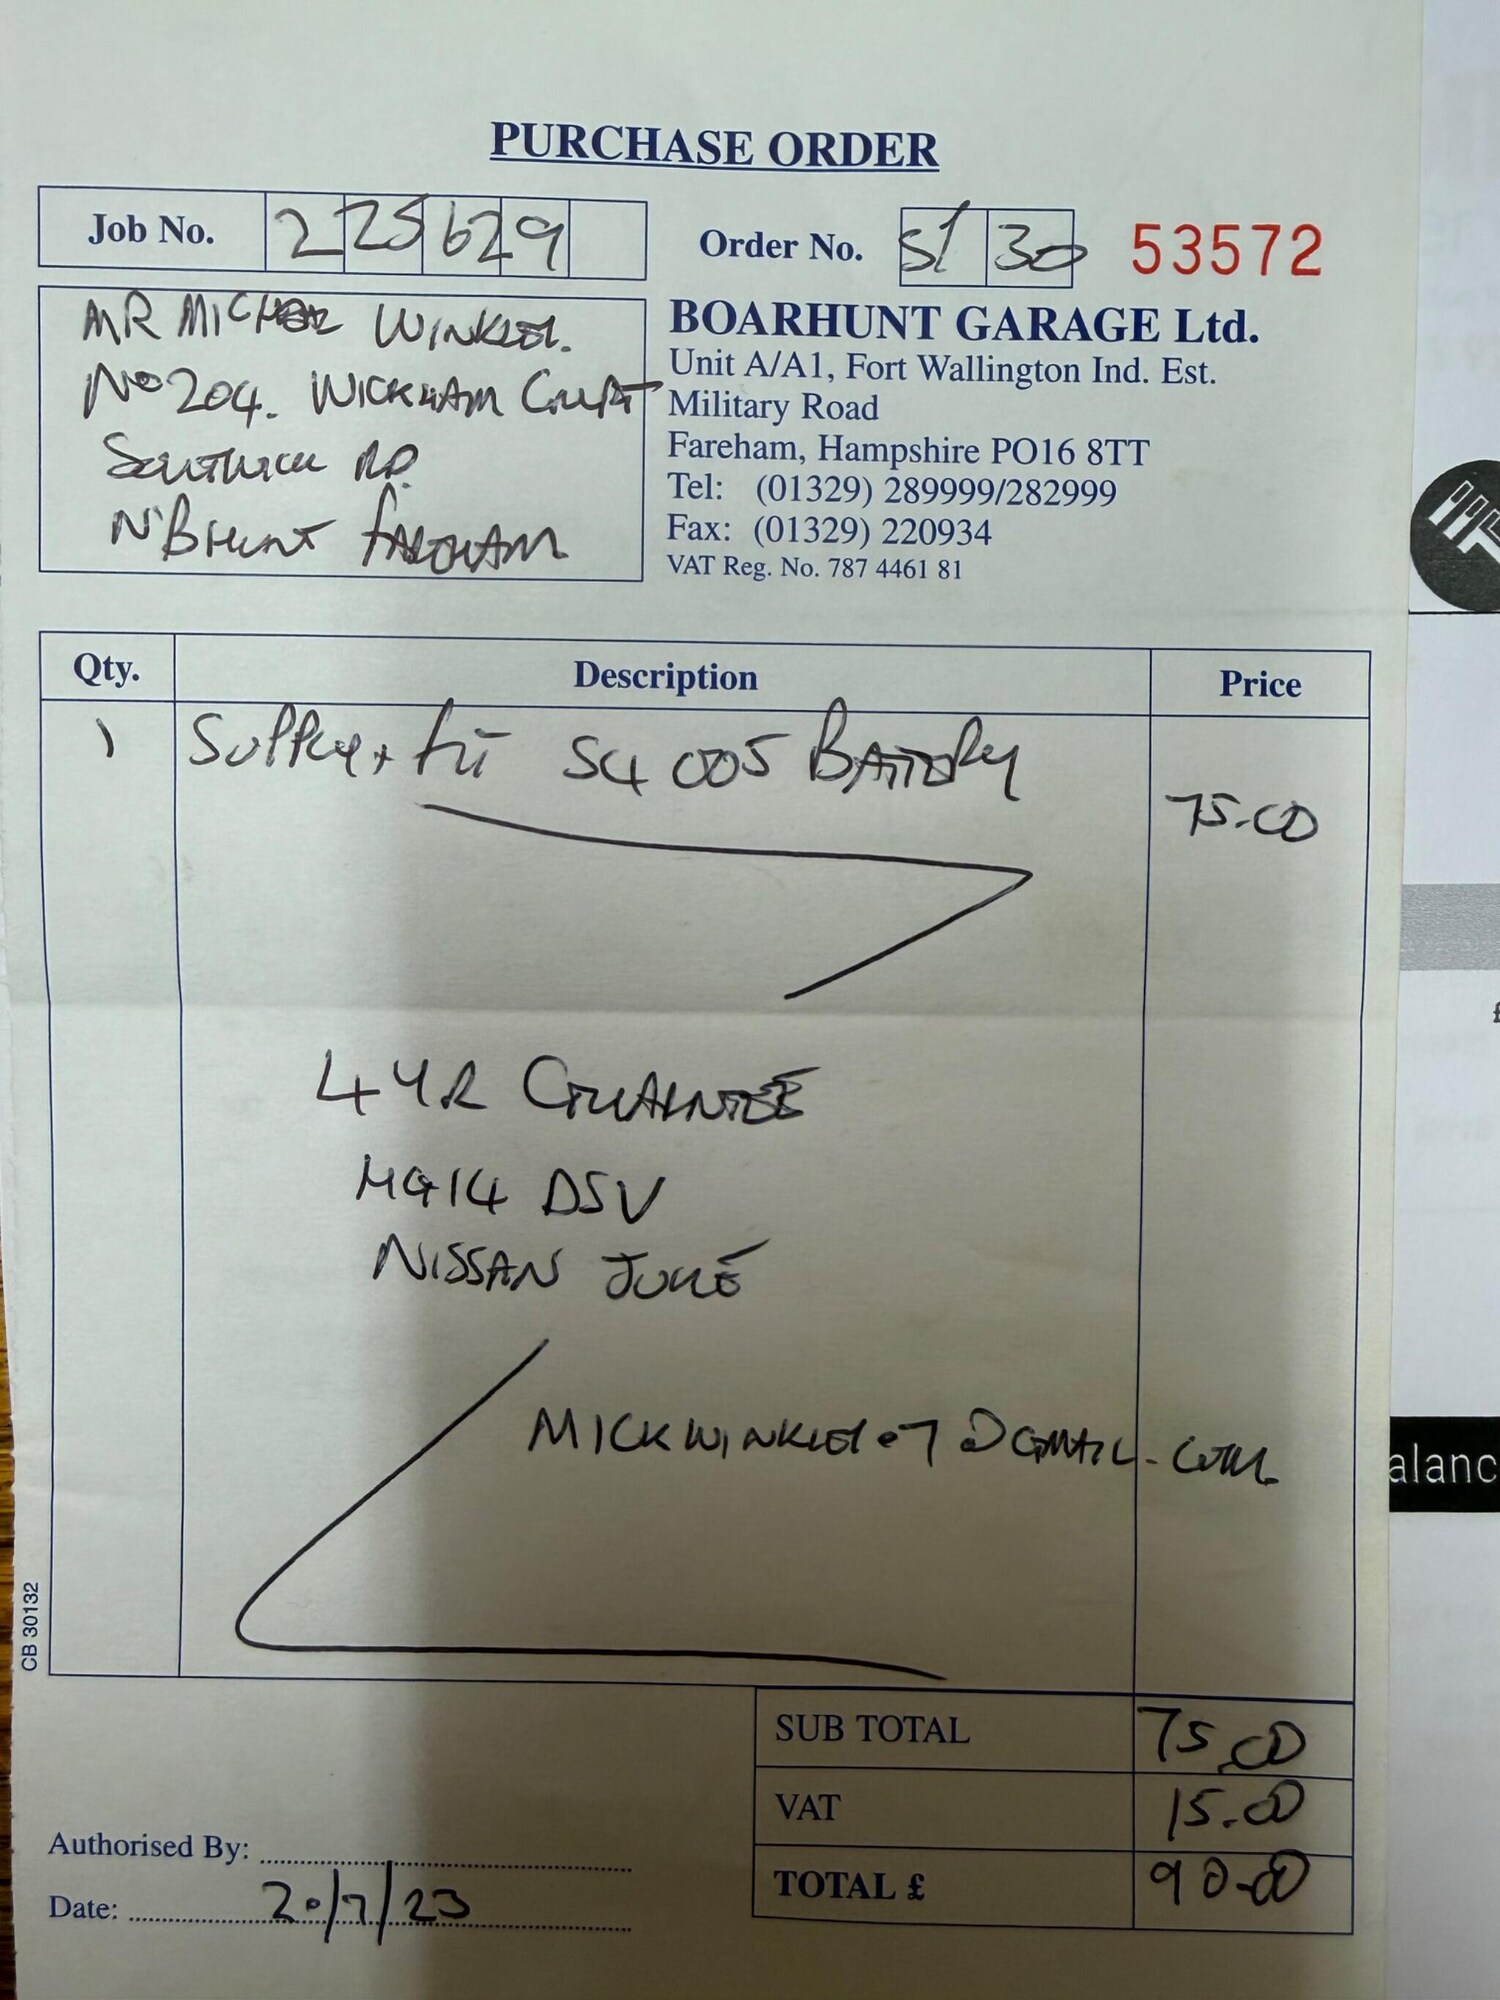 PURCHASE ORDER
Job No. 225629
Order No. S/ 30 53572
MR MICHAEL WINKLEL.
No 204. WICKHAM COURT
SOUTHWICK RD.
N'BHUNT FAREHAM
BOARHUNT GARAGE Ltd.
Unit A/A1, Fort Wallington Ind. Est.
Military Road
Fareham, Hampshire PO16 8TT
Tel: (01329) 289999/282999
Fax: (01329) 220934
VAT Reg. No. 787 4461 81
Qty. Description Price
1 Supply + fit S4 005 BATTERY 75.00
4 YR GUARNTEE
HG14 DSV
NISSAN JUKE
@GMAIL.COM
CB 30132
SUB TOTAL 75.00
VAT 15.00
TOTAL £ 90.00
Authorised By:
Date: 20/7/23
£
alanc